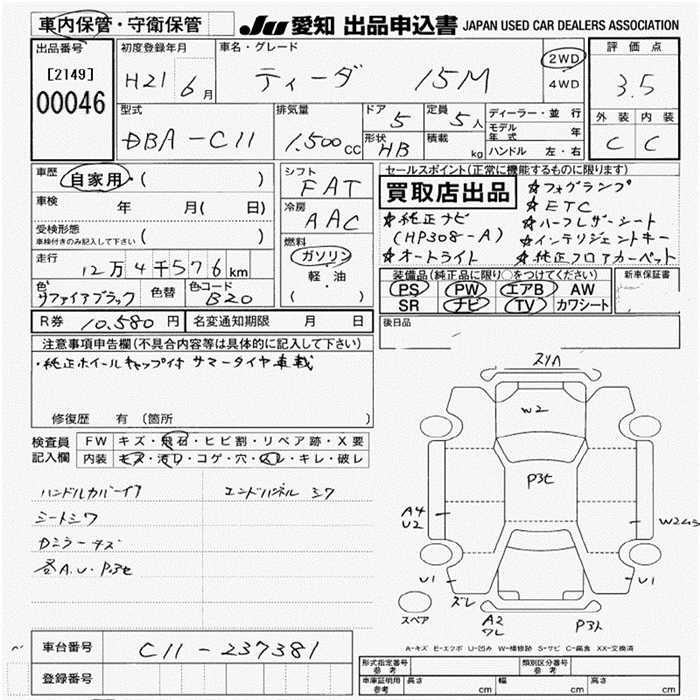 車内保管・守衛保管
JU 愛知 出品申込書 JAPAN USED CAR DEALERS ASSOCIATION
出品番号
[2149]
00046
初度登録年月
H21 6月
車名・グレード
ティーダ 15M
2WD
4WD
評価点
3.5
外装 内装
C C
型式
DBA-C11
排気量
1.500cc
ドア
5
定員
5人
形状
HB
積載
kg
ディーラー・並行
モデル年式 年
ハンドル 左・右
車歴
自家用・( )
車検
年 月( 日)
受検形態
車検付きのみ記入して下さい ( )
走行
12万4千576km
色
サファイアブラック
色替
色コード
B20
シフト
FAT
冷房
AAC
燃料
ガソリン
軽・油
( )
セールスポイント(正常に機能するものに限ります)
買取店出品
☆フォグランプ
☆ETC
☆純正ナビ
(HP308-A)
☆ハーフレザーシート
☆インテリジェントキー
☆オートライト
☆純正フロアカーペット
装備品(純正品に限り○をつけてください)
PS PW エアB AW
SR ナビ TV カワシート
新車保証書
R券 10.580円
名変通知期限 月 日
後日品
注意事項申告欄(不具合内容等は具体的に記入して下さい)
・純正ホイールキャップ付 サマータイヤ車載
修復歴 有 (箇所 )
検査員記入欄
FW キズ・飛石・ヒビ割・リペア跡・X要
内装 キズ・汚レ・コゲ・穴・スレ・キレ・破レ
ハンドルカバーイタ
シートシワ
エンドパネル シワ
P3セ
スリハ
W2
P3セ
A4
U2
W2ムラ
U1
U1
ズレ
A2
ワレ
P3ト
スペア
A-キズ E-エクボ U-凹み W-補修跡 S-サビ C-腐食 XX-交換済
車台番号
C11-237381
登録番号
形式指定番号
参考
類別区分番号
参考
車庫証明用
参考
長さ cm
幅 cm
高さ cm